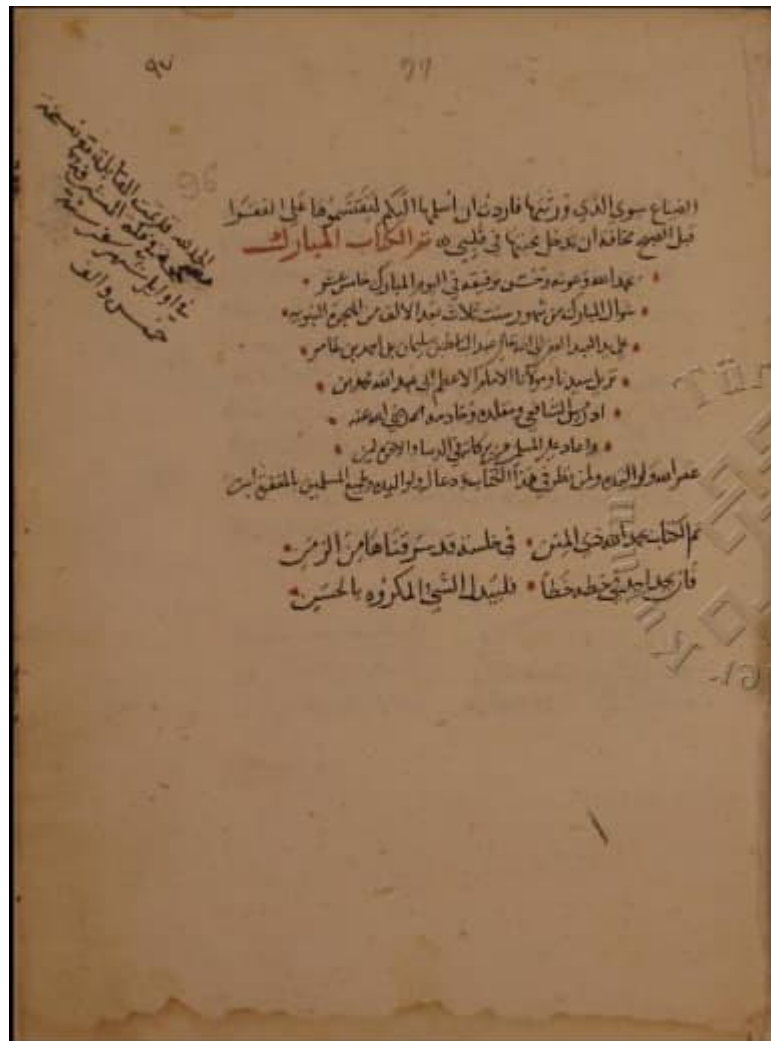 ٩٧
96
الحمد لله قد تمت المقابلة مع نسخة
في اوايل شهر سفر سنة
خمس والف
الضياع سوى الذي ورثتها فاردت ان ارسلها اليكم لتقتسموها على الفقرا
قبل الصبح مخافة ان تدخل محبتها في قلبي تم الكتاب المبارك
بحمد الله وعونه وحسن توفيقه في اليوم المبارك خامس عشر
شوال المبارك من شهور سنت ثلاث بعد الالف من الهجرة النبويه
على يد العبد الفقير الى الله تعالى سليمان بن احمد بن عامر
نزيل سيدنا ومولانا الامام الاعظم ابى عبد الله محمد بن
ادريس الشافعي ومقلده وخادمه رضي الله عنه
واعاد على المسلمين من بركاته في الدنيا والاخرة امين
غفر الله له ولوالديه ولمن نظر في هذا الكتاب ودعا له ولوالديه ولجميع المسلمين بالمغفرة امين
تم الكتاب بحمد الله ذي المنن في خلسة قد سرقناها من الزمن
فان يجد احد في خطه خطأ فليبدل الشيء المكروه بالحسن